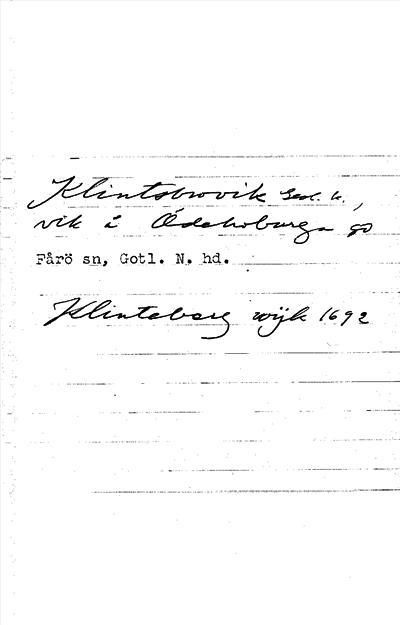 Klintsbrovik Geol. k.,
vik i Ödehoburga go
Fårö sn, Gotl. N. hd.
Klinteberg wijk 1692